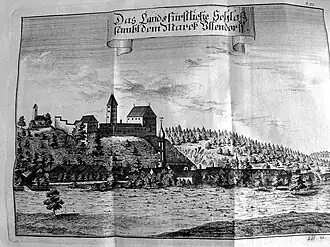 Das Landsfürstliche Schloß
sambt dem Marck Uttendorff.